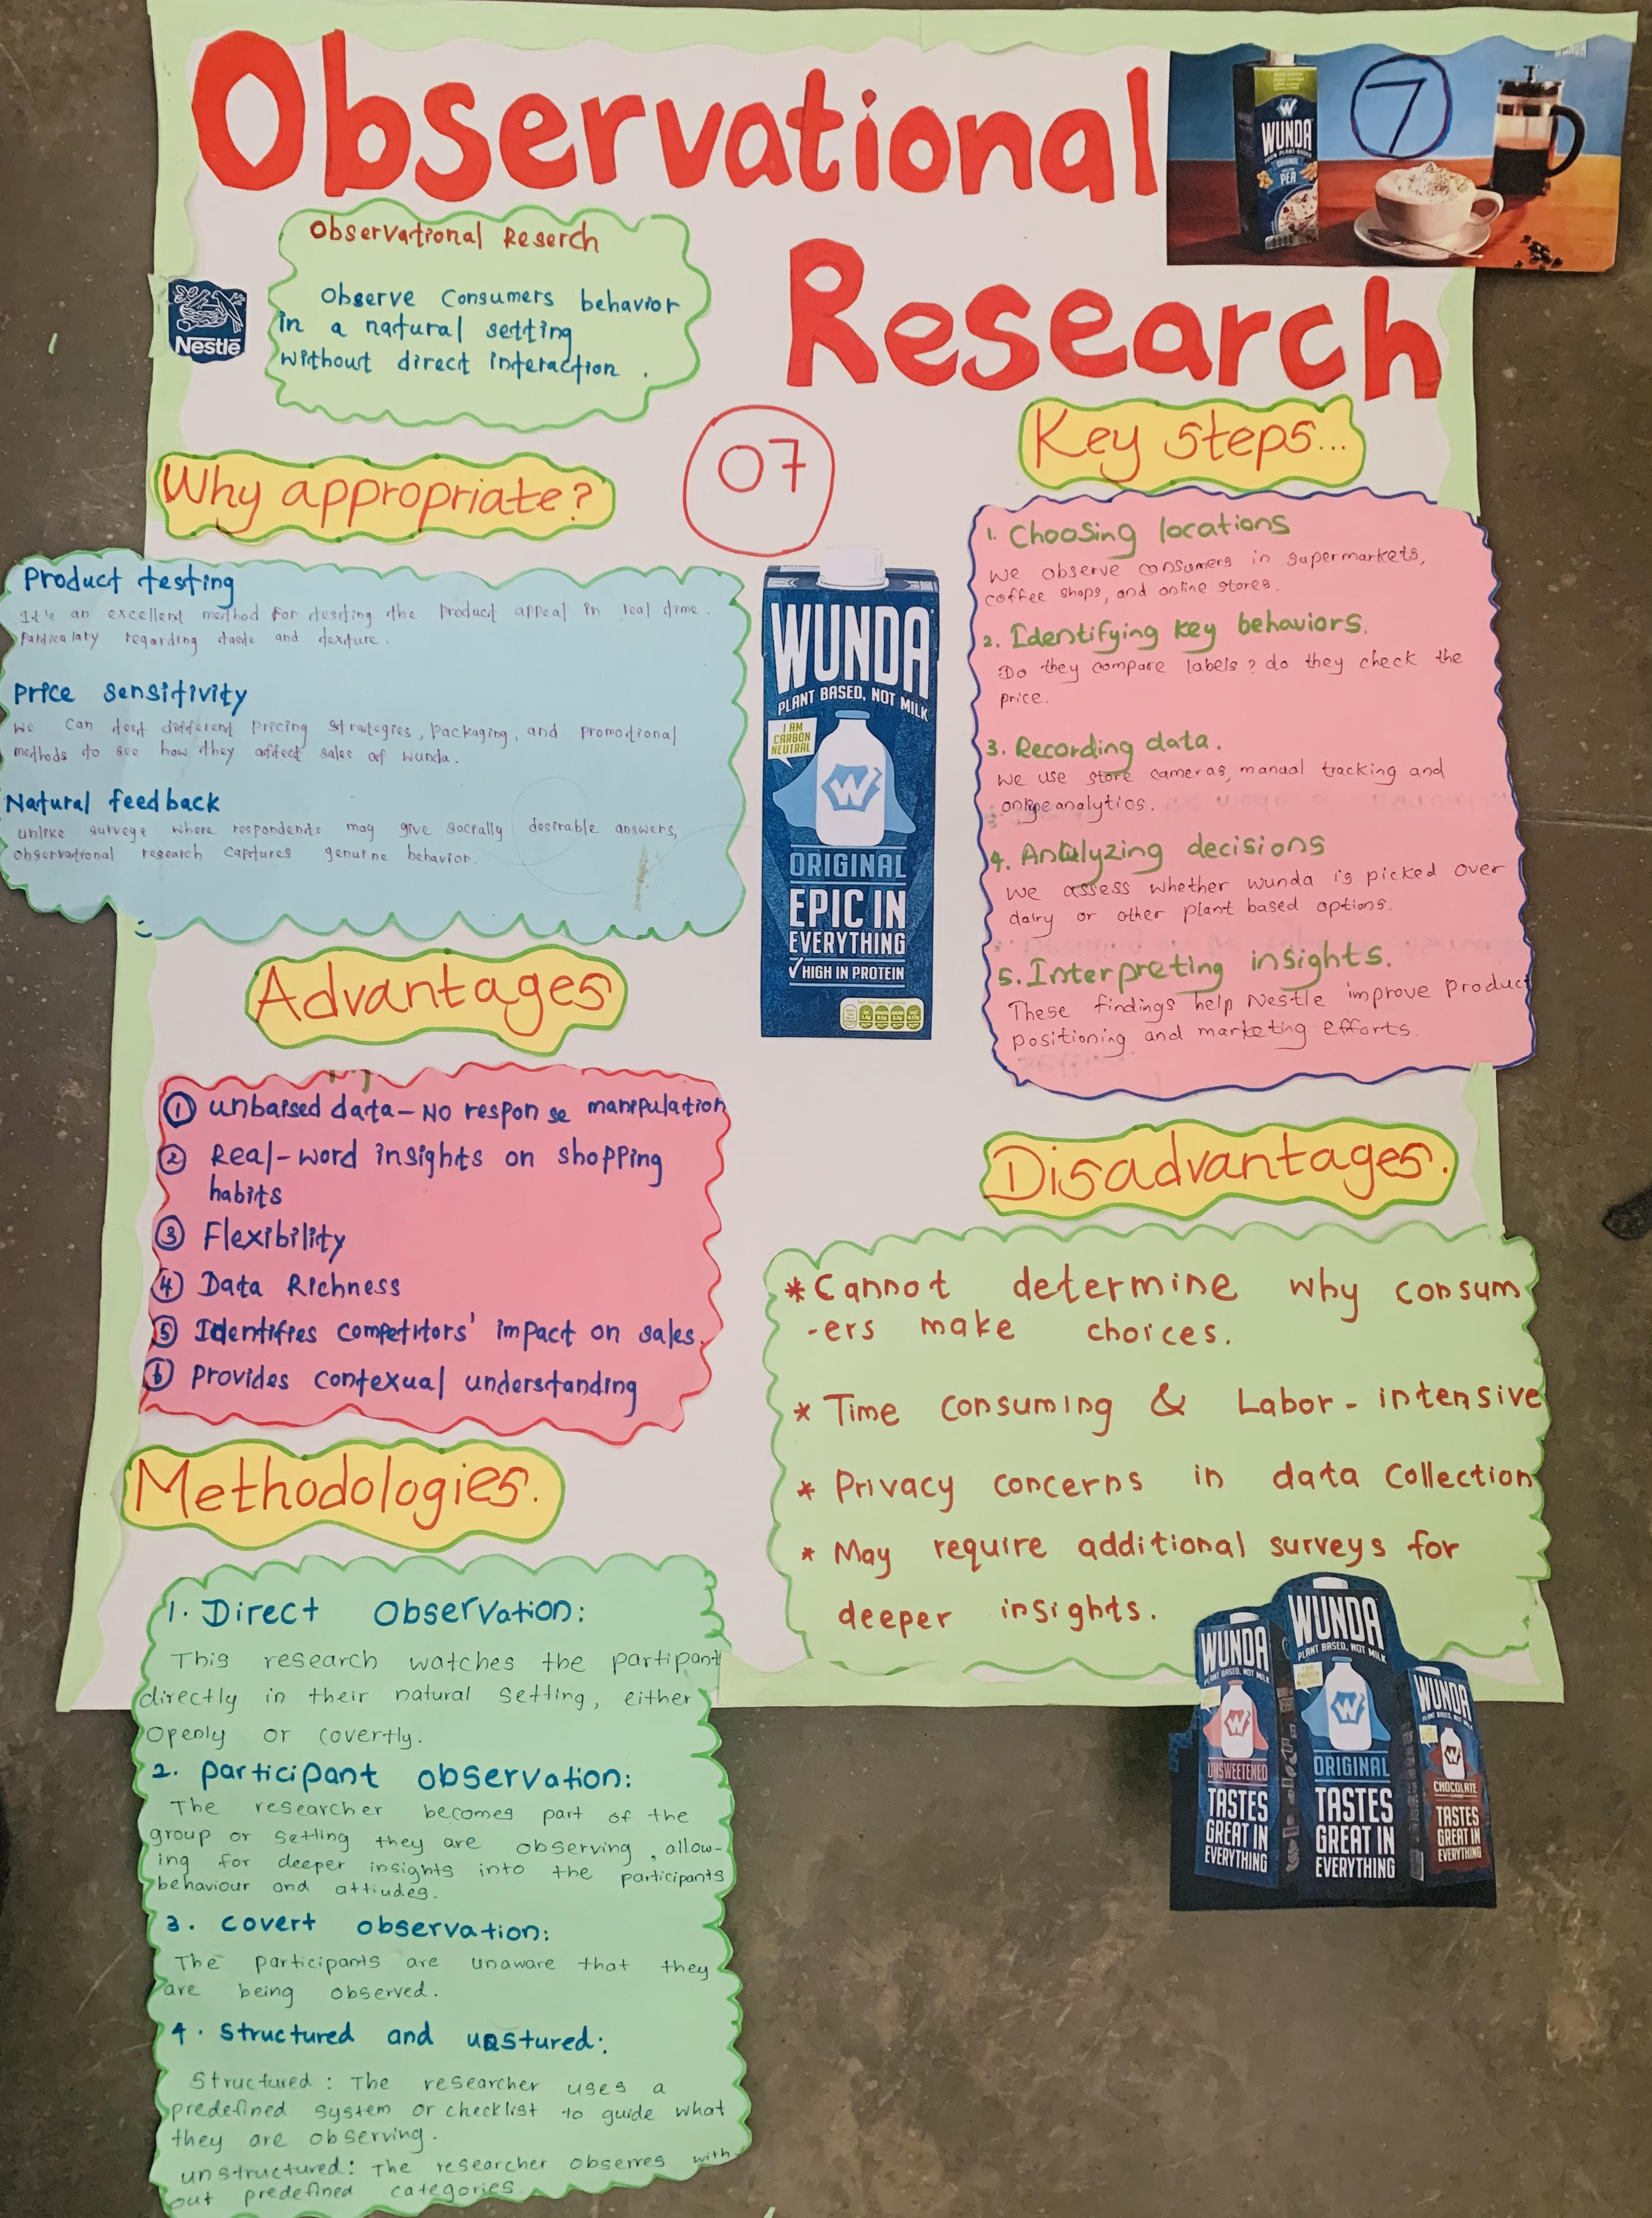 Observational
Research
7
WUNDA
ORIGINAL
PEA
Observational Reserch
Observe Consumers behavior
in a natural setting
without direct interaction .
Nestlé
07
Why appropriate?
Product testing
It's an excellent method for testing the product appeal in real time.
regarding taste and texture.
Price sensitivity
We can test different pricing strategies, packaging, and promotional
methods to see how they affect sales of wunda.
Natural feedback
unlike surveys where respondents may give socially desirable answers,
observational research captures genuine behavior.
WUNDA
PLANT BASED, NOT MILK
I AM
CARBON
NEUTRAL
W
ORIGINAL
EPIC IN
EVERYTHING
✓HIGH IN PROTEIN
Key steps...
1. Choosing locations
We observe consumers in supermarkets,
coffee shops, and online stores.
2. Identifying key behaviors.
Do they compare labels? do they check the
price.
3. Recording data.
We use store cameras, manual tracking and
online analytics.
4. Analyzing decisions
We assess whether wunda is picked over
dairy or other plant based options.
5. Interpreting insights.
These findings help Nestle improve product
positioning and marketing efforts.
Advantages
① unbaised data – No response manipulation
② Real-word insights on shopping
habits
③ Flexibility
④ Data Richness
⑤ Identifies competitors' impact on sales.
⑥ Provides contexual understanding
Disadvantages.
* Cannot determine why consum
-ers make choices.
* Time consuming & Labor-intensive
* Privacy concerns in data Collection
* May require additional surveys for
deeper insights.
Methodologies.
1. Direct Observation:
This research watches the partipant
directly in their natural setting, either
openly or covertly.
2. participant observation:
The researcher becomes part of the
group or setting they are observing, allow-
ing for deeper insights into the participants
behaviour and attiudes.
3. covert observation:
The participants are unaware that they
are being observed.
4. structured and unstured:
Structured : The researcher uses a
predefined system or checklist to guide what
they are observing.
unstructured: The researcher observes with
out predefined categories.
WUNDA
PLANT BASED, NOT MILK
W
UNSWEETENED
TASTES
GREAT IN
EVERYTHING
WUNDA
PLANT BASED, NOT MILK
W
ORIGINAL
TASTES
GREAT IN
EVERYTHING
WUNDA
W
CHOCOLATE
TASTES
GREAT IN
EVERYTHING